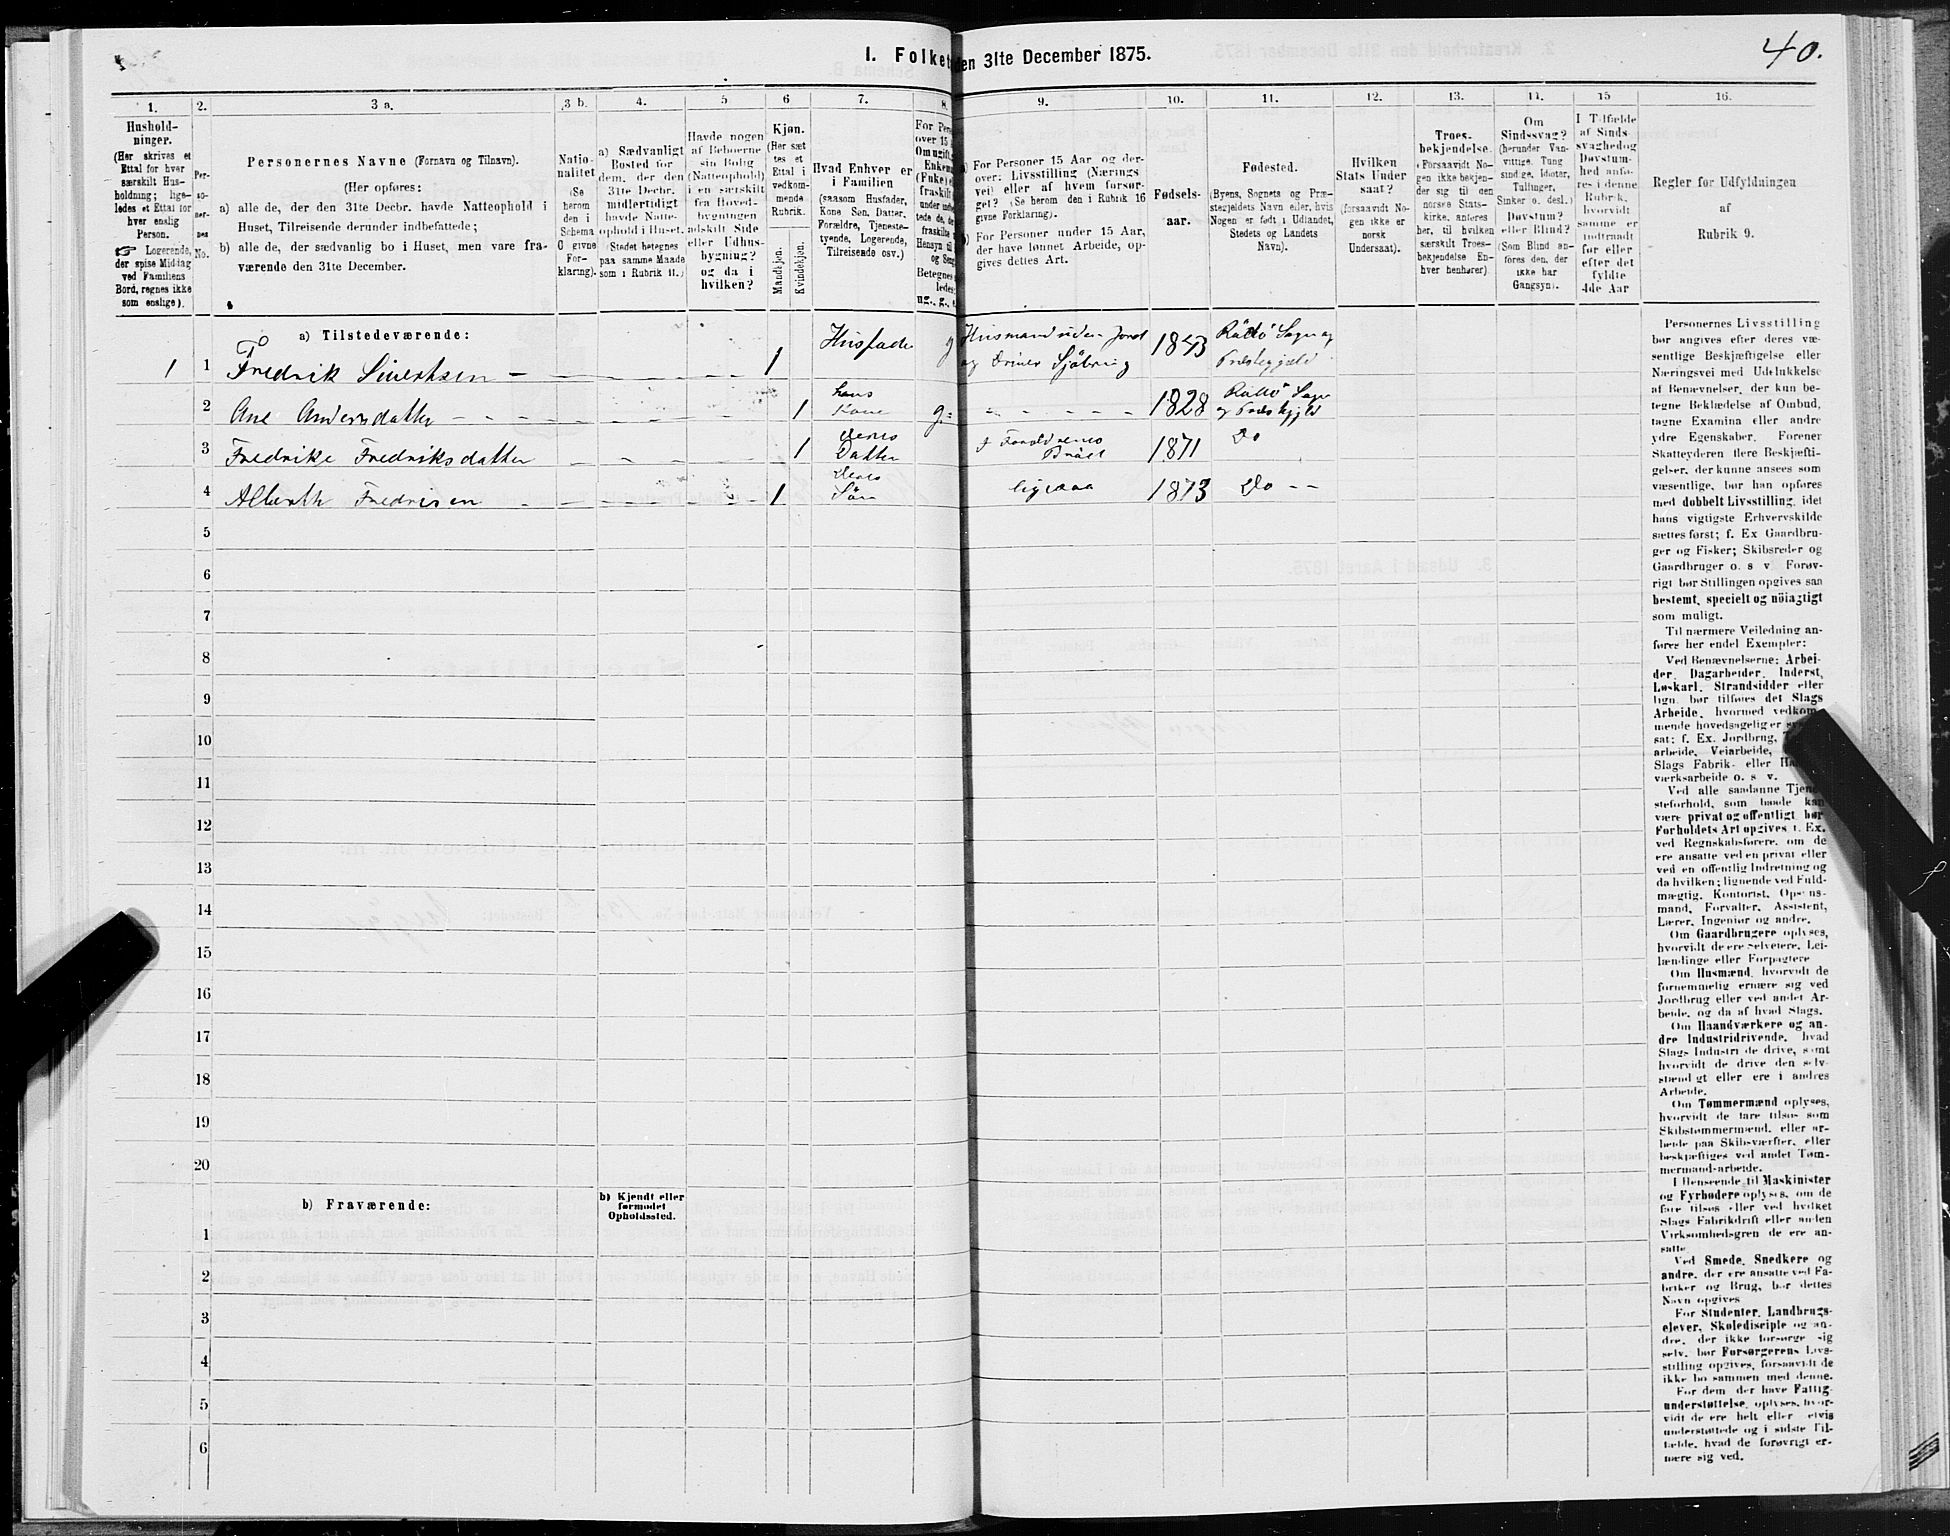 I. Folket den 31te December 1875.
40.
1.
2.
3 a.
3 b.
4.
5
6
7.
8.
9.
10.
11.
12.
13.
14.
15
16.
Hushold-
ninger.
(Her skrives et
Ettal for hver
særskilt Hus-
holdning; lige-
ledes et Ettal for
hver enslig
Person.
☞ Logerende,
der spise Middag
ved Familiens
Bord, regnes ikke
som enslige).
Per-
so-
ner-
nes
No.
Personernes Navne (Fornavn og Tilnavn).
(Her opføres:
a) alle de, der den 31te Decbr. havde Natteophold i
Huset, Tilreisende derunder indbefattede;
b) alle de, der sædvanlig bo i Huset, men vare fra-
værende den 31te December.
Natio-
nalitet
(Se
herom
den i
Schema
C givne
For-
klaring).
a) Sædvanligt
Bosted for
dem, der den
31te Decbr.
midlertidigt
havde Natte-
ophold i Huset.
(Stedet betegnes
paa samme Maade
som i Rubrik 11.)
Havde nogen
af Beboerne
sin Bolig
(Natteophold)
i en særskilt
fra Hoved-
bygningen
adskilt Side
eller Udhus-
bygning?
og da i
hvilken?
Kjøn.
(Her sæt
tes et
Ettal i
vedkom-
mende
Rubrik.
Mandkjøn.
Kvindekjøn.
Hvad Enhver er
i Familien
(saasom Husfader,
Kone Søn, Datter,
Forældre, Tjeneste-
tyende, Logerende,
Tilreisende osv.)
For Pers
over 15
Om ugift,
Enkem
(Enke) e
fraskilt
under indbe-
tede de,
fraskilte
Hensyn til
og Seng
Betegnes
ledes:
ug., g., e
a) For Personer 15 Aar og der-
over: Livsstilling (Nærings
vei) eller af hvem forsør-
get? (Se herom den i Rubrik 16
givne Forklaring).
b) For Personer under 15 Aar,
der have lønnet Arbeide, op-
gives dettes Art.
Fødsels-
aar.
Fødested.
(Byens, Sognets og Præ-
stegjeldets Navn eller, hvis
Nogen er født i Udlandet,
Stedets og Landets
Navn).
Hvilken
Stats Under
saat?
(forsaavidt No-
gen ikke er
norsk
Undersaat).
Troes-
bekjendelse.
(Forsaavidt No-
gen ikke bekjen-
der sig til den
norske Stats-
kirke, anføres
her, til hvilken
særskilt Troes-
bekjendelse En-
hver henhører)
Om
Sindssvag?
(herunder Van-
vittige, Tung
sindige, Idioter,
Tullinger,
Sinker o. desl.)
Døvstum?
eller Blind?
(Som Blind an-
føres den, der
ikke har
Gangsyn).
I Tilfælde
af Sinds-
svaghed og
Døvstum-
hed anfø-
res i denne
Rubrik,
hvorvidt
samme er
indtraadt
før eller
efter det
fyldte
4de Aar
Regler for Udfyldningen
af
Rubrik 9.
a) Tilstedeværende:
1 1 Fredrik Siwertsen 1 Husfader g Husmand uden Jord
og driver Sjöbrug 1843 Rödö Sogn og
Præstegjæld
2 Ane Andersdatter 1 hans
Kone g. 1828 Rödö Sogn
og Præstegjeld
3 Fredrike Fredriksdatter 1 deres
Datter f Forældrenes
Bröd 1871 Do
4 1 Deres
Sön ligesaa 1873 Do
5
6
7
8
9
10
11
12
13
14
15
16
17
18
19
20
b) Fraværende:
b) Kjendt eller
formodet
Opholdssted.
1
2
3
4
5
6
Personernes Livsstilling
bør angives efter deres væ-
sentlige Beskjæftigelse eller
Næringsvei med Udelukkelse
af Benævnelser, der kun be-
tegne Beklædelse af Ombud,
tagne Examina eller andre
ydre Egenskaber. Forener
Skatteyderen flere Beskjæfti-
gelser, der kunne ansees som
væsentlige, bør han opføres
med dobbelt Livsstilling, idet
hans vigtigste Erhvervskilde
sættes først; f. Ex Gaardbru-
ger og Fisker; Skibsreder og
Gaardbruger o. s v. Forøv-
rigt bør Stillingen opgives saa
bestemt, specielt og nöiagtigt
som muligt.
Til nærmere Veiledning an-
føres her endel Exempler:
Ved Benævnelserne: Arbei-
der, Dagarbeider, Inderst,
Løskarl, Strandsidder eller
lign. bør tilføies det Slags
Arbeide, hvormed vedkom-
mende hovedsagelig er
sat; f. Ex. Jordbrug,
arbeide, Veiarbeide,
Slags Fabrik- eller
værksarbeide o. s v.
Ved alle saadanne Tjene
steforhold, som baade kan
være privat og offentligt, bør
Forholdets Art opgives, t. Ex.
ved Regnskabsførere, om de
ere ansatte ved en privat eller
ved en offentlig Indretning og
da hvilken; lignende ved Fuld-
mægtig, Kontorist, Opsyns-
mand, Forvalter, Assistent,
Lærer, Ingeniør og andre.
Om Gaardbrugere oplyses,
hvorvidt de ere Selveiere, Lei-
lændinge eller Forpagtere
Om Husmænd, hvorvidt de
fornemmelig ernære sig ved
Jordbrug eller ved andet Ar-
beide, og da af hvad Slags.
Om Haandværkere og an-
dre Industridrivende, hvad
Slags Industri de drive, samt
hvorvidt de drive den selv-
stændigt eller ere i andres
Arbeide.
Om Tømmermænd oplyses,
hvorvidt de fare tilsøs som
Skibstømmermænd, eller ar-
beide paa Skibsværfter, eller
beskæftiges ved andet Tøm-
mermandsarbeide.
I Henseende til Maskinister
og Fyrbødere oplyses, om de
fare tilsøs eller ved hvilket
Slags Fabrikdrift eller anden
Virksomhedsgren de ere an-
satte
Ved Smede, Snedkere og
andre, der ere ansatte ved Fa-
briker og Brug, bør dettes
Navn opgives
For Studenter, Landbrugs-
elever, Skoledisciple og an-
dre, der ikke forsørge sig
selv, bør Forsørgerens Livs-
stilling opgives, forsaavidt de
ikke bo sammen med denne.
For dem, der have Fattig-
understøttelse, oplyses, hvor-
vidt de ere helt eller elvis
understøttede og i sidste Til-
fælde, hvad de forøvrigt er-
nære sig ved.